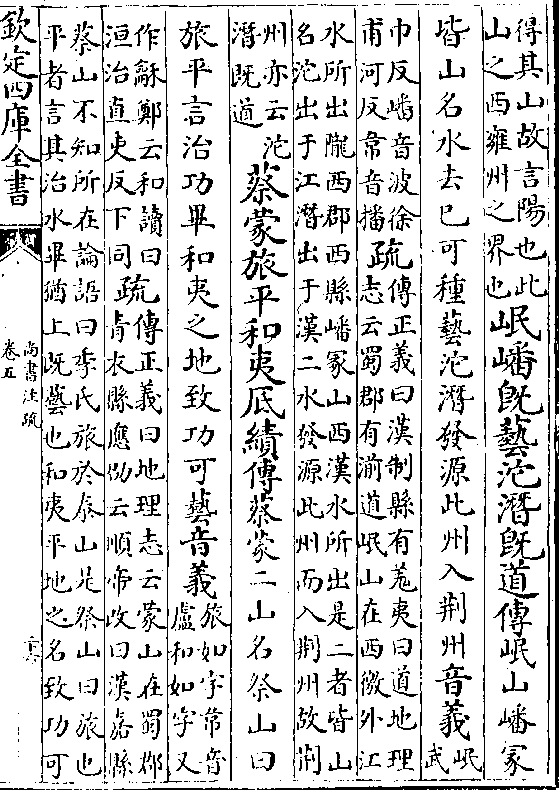 得其山故言陽也此
山之西雍州之界也
岷嶓既藝沱潛既道傳岷山嶓冢
皆山名水去已可種藝沱潛發源此州入荆州音義
岷
武
巾反嶓音波徐
甫河反韋音播
疏
傳正義曰漢制縣有羗夷曰道地理
志云蜀郡有湔道岷山在西徼外江
水所出隴西郡西縣嶓冢山西漢水所出是二者皆山
名沱出于江潛出于漢二水發源此州而入荆州故荆
州亦云沱
潛既道
蔡蒙旅平和夷厎績傳蔡蒙二山名祭山曰
旅平言治功畢和夷之地致功可藝音義
旅如字韋音
盧和如字又
作龢鄭云和讀曰
洹治直吏反下同
疏
傳正義曰地理志云蒙山在蜀郡
青衣縣應劭云順帝改曰漢嘉縣
蔡山不知所在論語曰季氏旅於泰山是祭山曰旅也
平者言其治水畢猶上既藝也和夷平地之名致功可
欽定四庫全書
尚書注疏
卷五